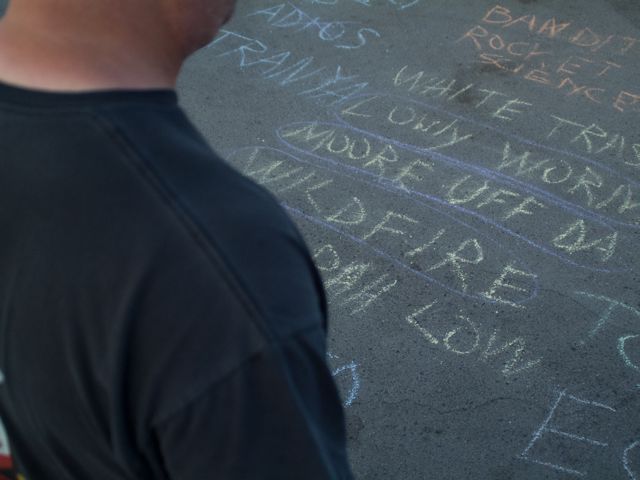 ADIOS
TRANYA
BANDIT
ROCKET
SCIENCE
WHITE TRAS
LOWLY WORM
MOORE UFF DA
WILDFIRE
LOW